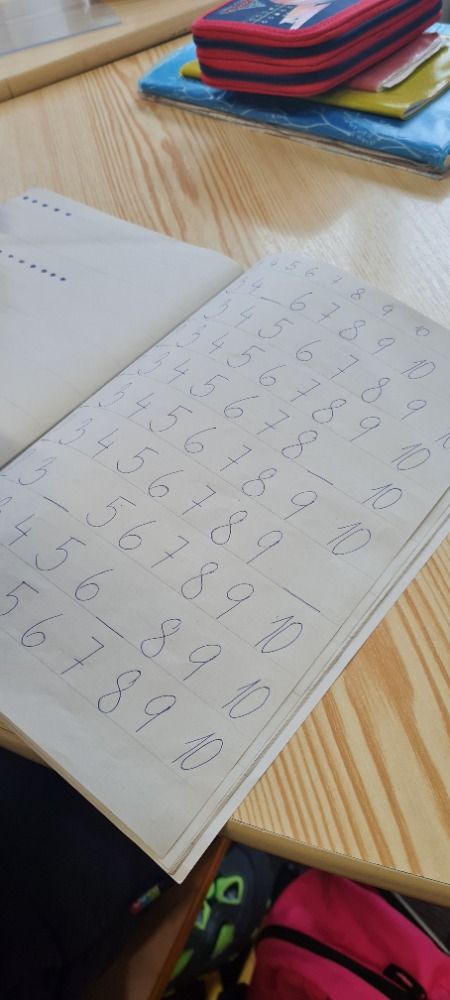 4 5 6 7 8 9 10
3 4 _ 6 7 8 9 10
3 4 5 6 7 8 9
3 4 5 6 7 8 9 10
3 4 5 6 7 8 _ 10
3 4 5 6 7 8 9 10
3 4 5 6 7 8 9 _
3 _ 5 6 7 8 9 10
3 4 5 6 _ 8 9 10
5 6 7 8 9 10